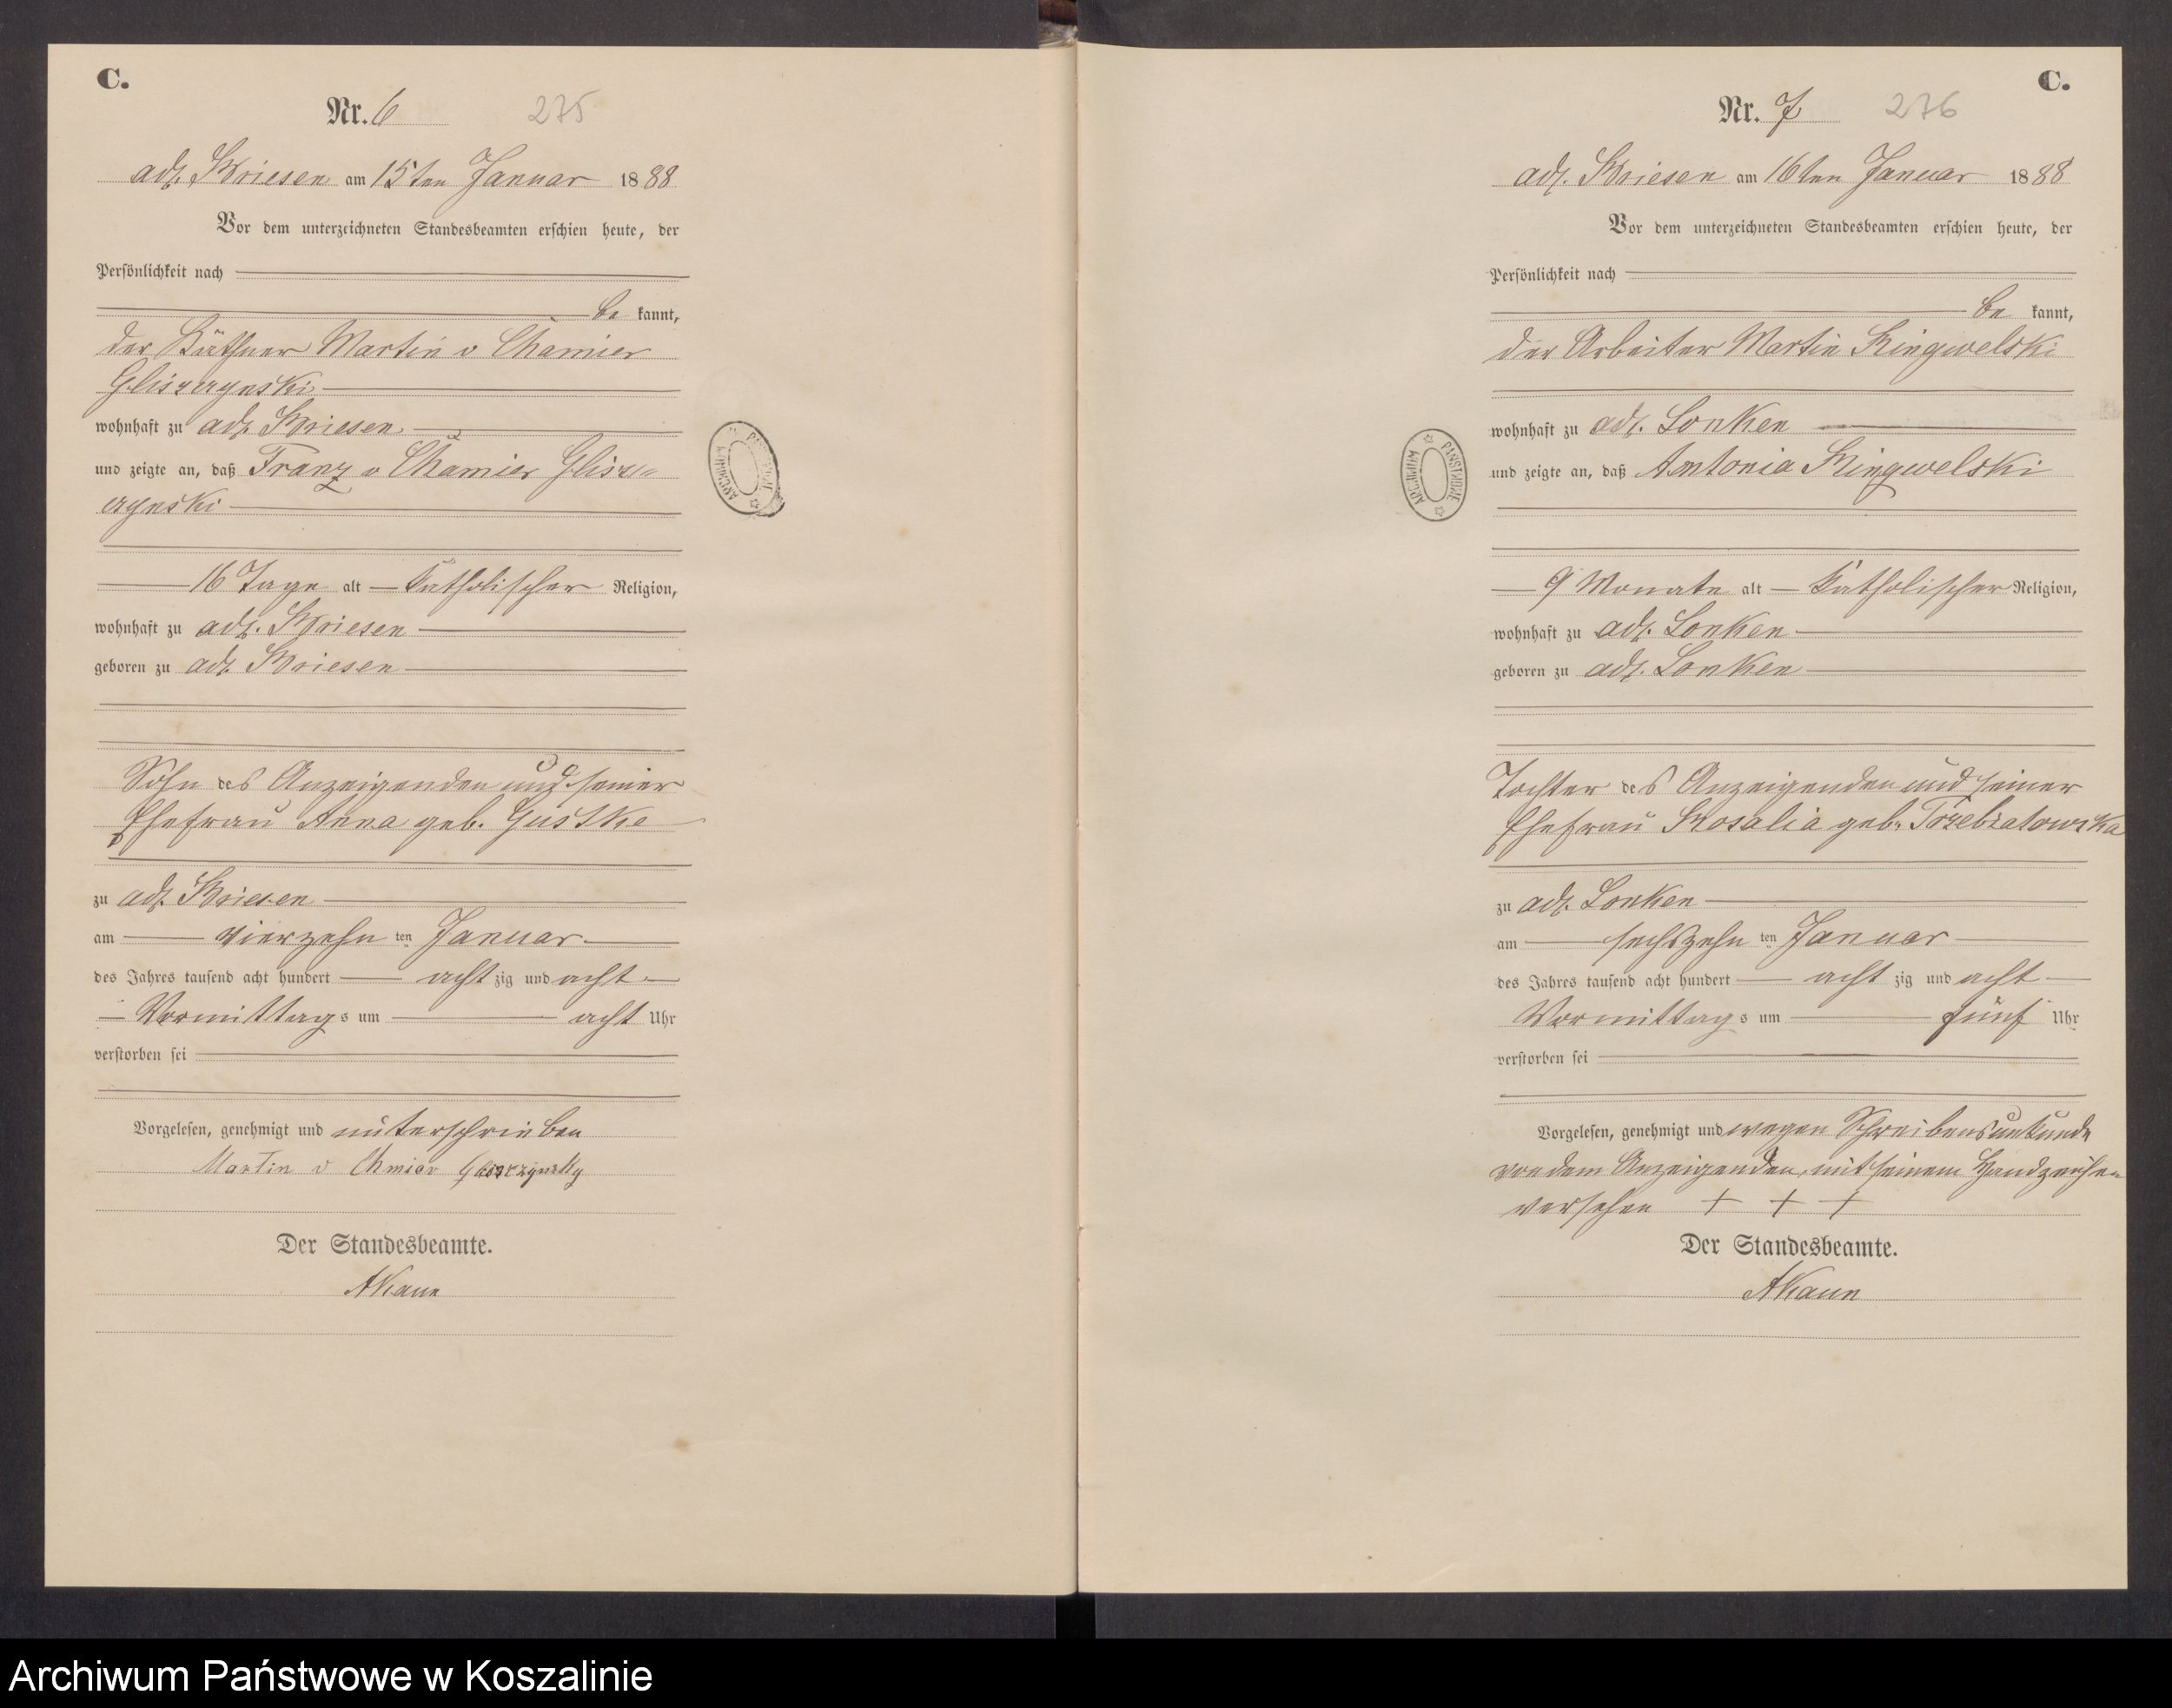 C.
Nr. 6 275
adl. Briesen am 15ten Januar 1888
Vor dem unterzeichneten Standesbeamten erschien heute, der
Persönlichkeit nach
be kannt,
der Käthner Martin v Chamier
Gliszczynski
wohnhaft zu adl. Briesen
und zeigte an, daß Franz v Chamier Glisz-
czynski
16 Tage alt katholischer Religion,
wohnhaft zu adl. Briesen
geboren zu adl. Briesen
Sohn des Anzeigenden und seiner
Ehefrau Anna geb. Gustke
zu adl. Briesen
am vierzehn ten Januar
des Jahres tausend acht hundert acht zig und acht
Vormittags um acht Uhr
verstorben sei
Vorgelesen, genehmigt und unterschrieben
Martin v Chmier Gliszczynsky
Der Standesbeamte.
AKaun
ARCHIWUM PAŃSTWOWE
C.
Nr. 7 276
adl. Briesen am 16ten Januar 1888
Vor dem unterzeichneten Standesbeamten erschien heute, der
Persönlichkeit nach
be kannt,
der Arbeiter Martin Ringwelski
wohnhaft zu adl. Lonken
und zeigte an, daß Antonia Ringwelski
9 Monate alt katholischer Religion,
wohnhaft zu adl. Lonken
geboren zu adl. Lonken
Tochter des Anzeigenden und seiner
Ehefrau Rosalia geb. Trzebiatowska
zu adl. Lonken
am sechszehn ten Januar
des Jahres tausend acht hundert acht zig und acht
Vormittags um fünf Uhr
verstorben sei
Vorgelesen, genehmigt und wegen Schreibensunkunde
von dem Anzeigenden, mit seinem Handzeichen
versehen + + +
Der Standesbeamte.
AKaun
ARCHIWUM PAŃSTWOWE
Archiwum Państwowe w Koszalinie